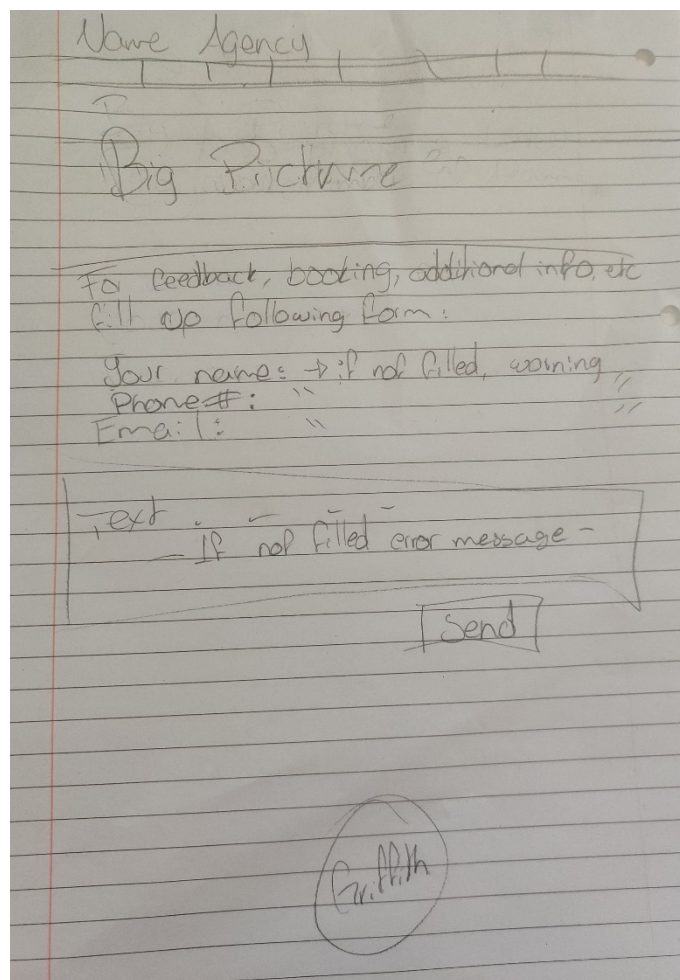 Name Agency
Big Picture
To feedback, booking, additional info, etc
fill up following form:
Your name: → if not filled, warning
Phone #: " "
Email: " "
Text
- If not filled error message -
Send
Griffith